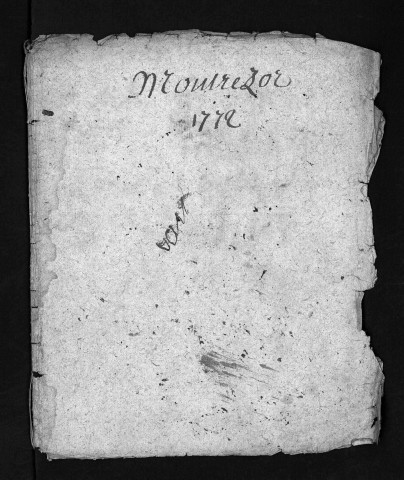 Montrezor
1772